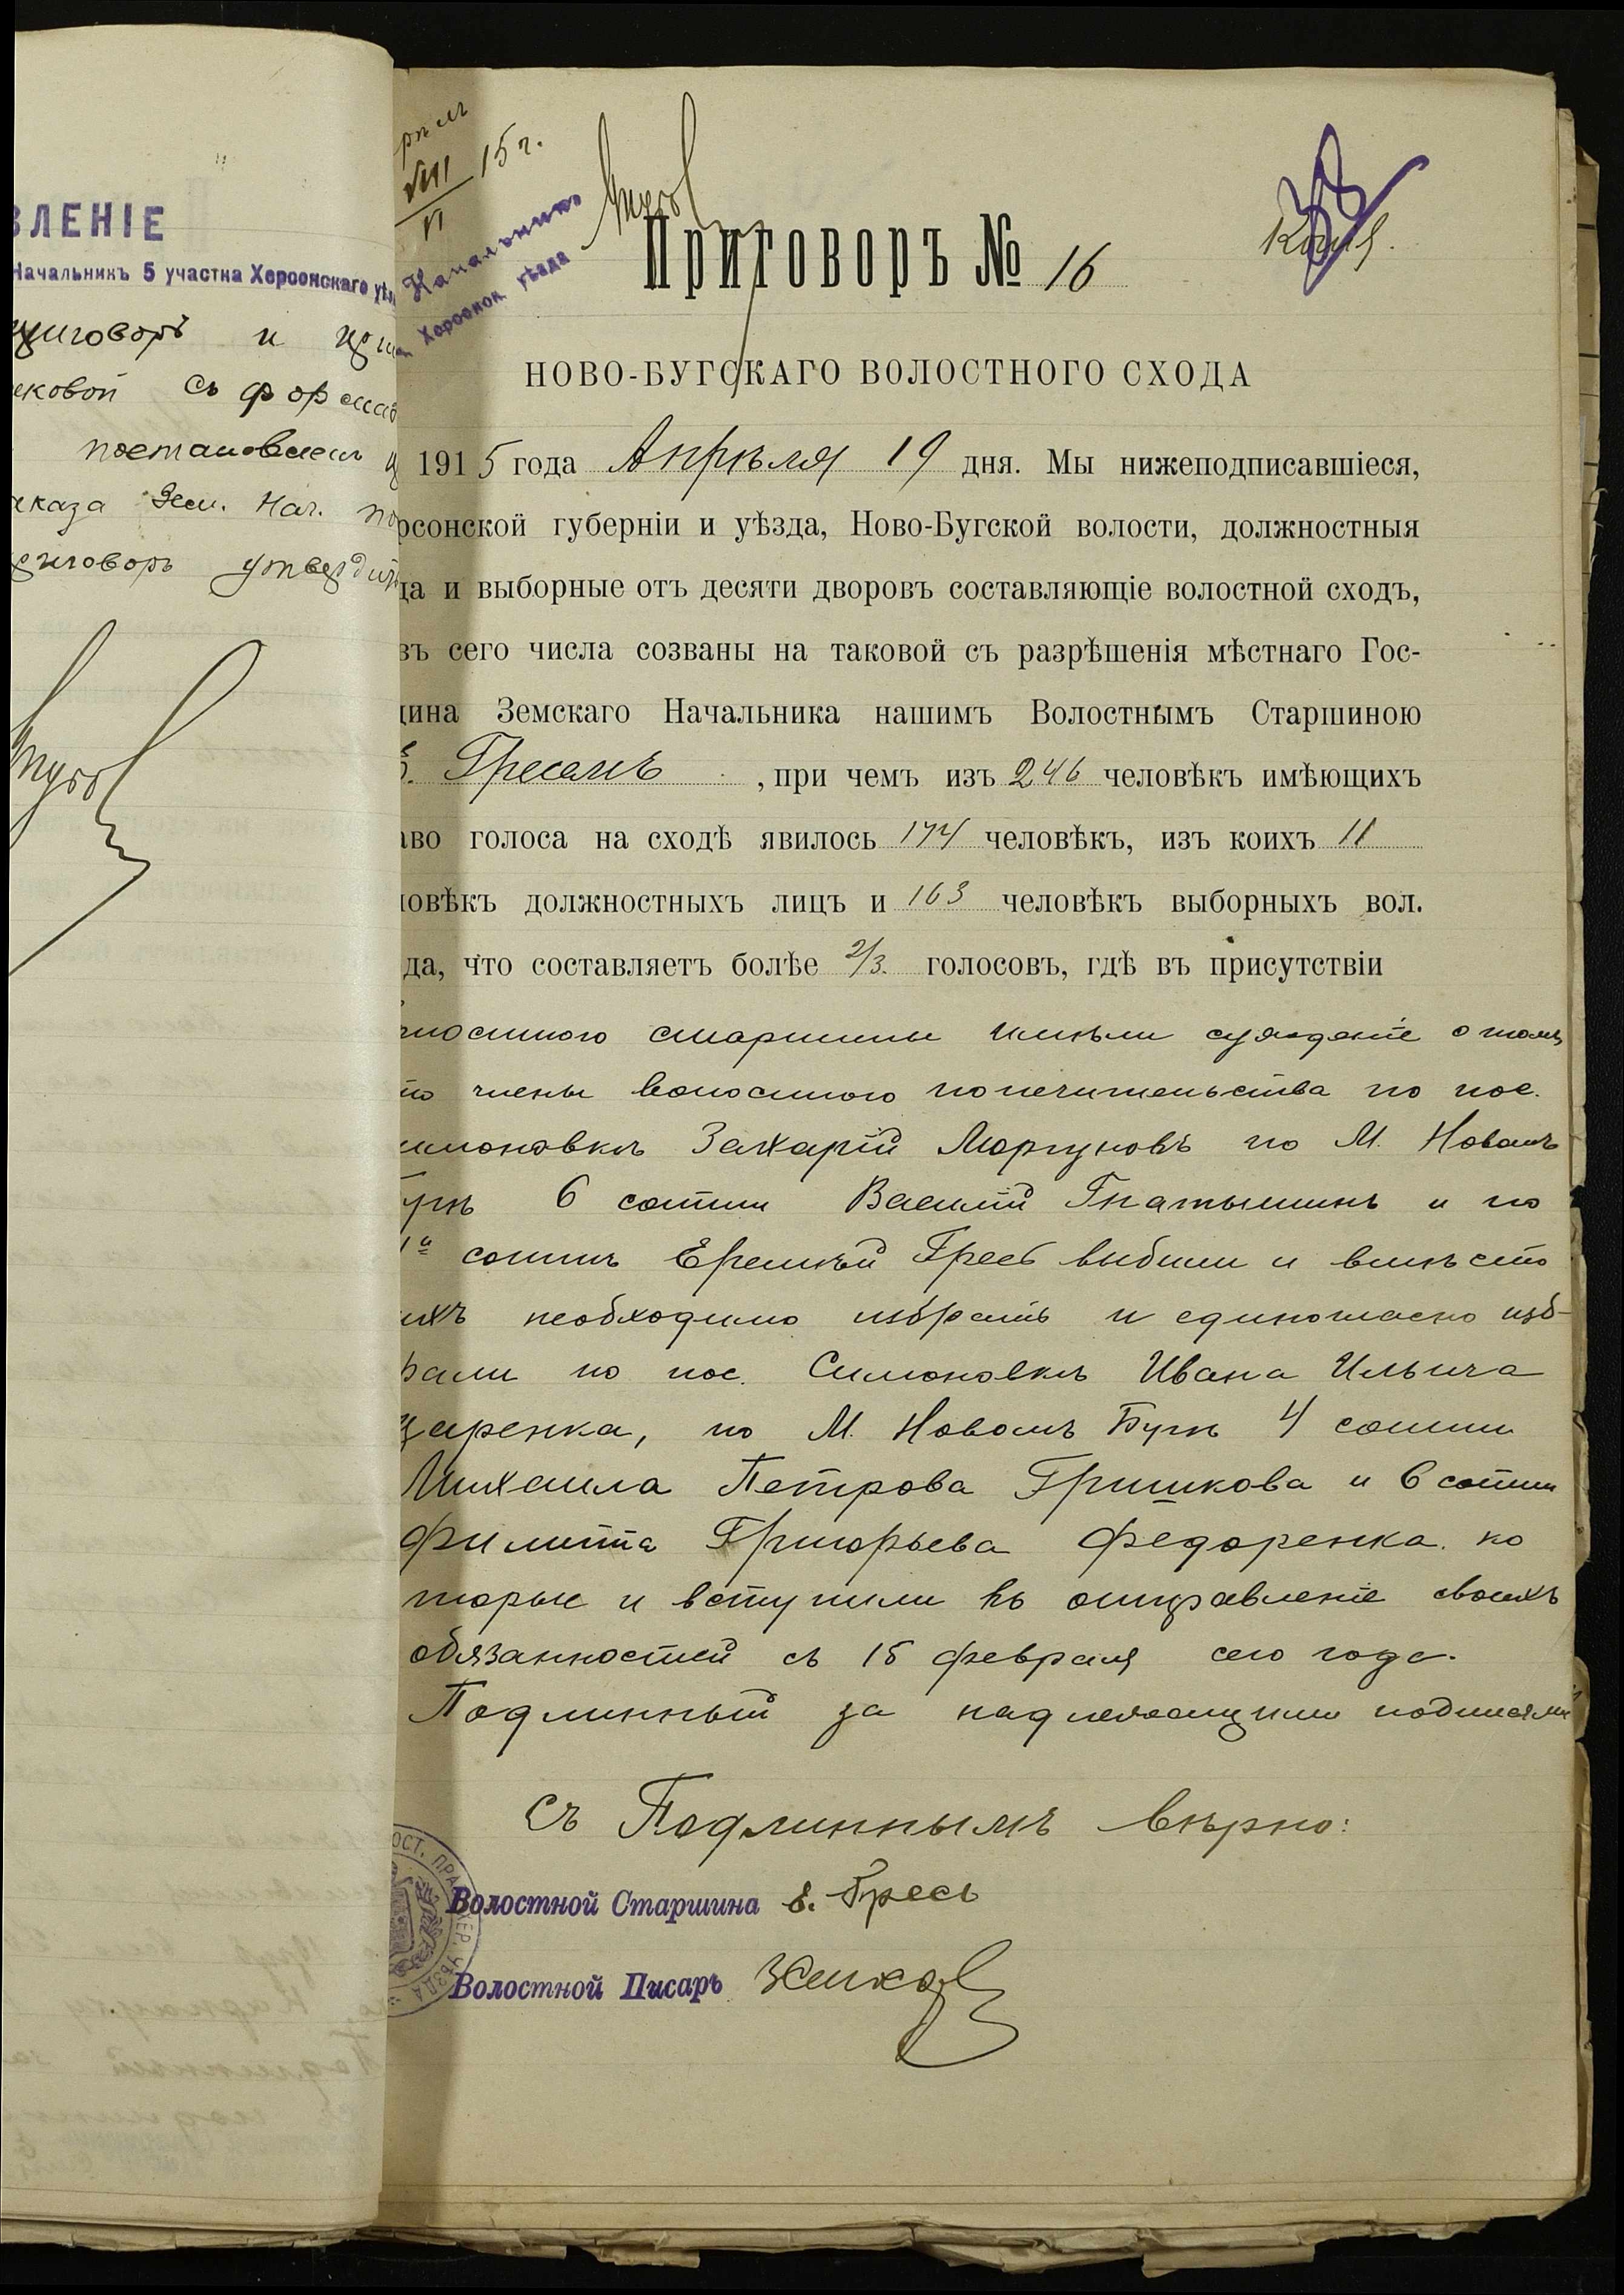 ВЛЕНІЕ
Начальникъ 5 участка Херсонскаго уѣ
приговоръ и
ековой съ
постановленъ
Зем. Нач.
приговоръ утвердить
VIII 15 г.
VI
Начальникъ
Херсонск уѣзда
Копія.
Приговоръ № 16
НОВО-БУГСКАГО ВОЛОСТНОГО СХОДА
1915 года Апрѣля 19 дня. Мы нижеподписавшіеся,
рсонской губерніи и уѣзда, Ново-Бугской волости, должностныя
ца и выборные отъ десяти дворовъ составляющіе волостной сходъ,
въ сего числа созваны на таковой съ разрѣшенія мѣстнаго Гос-
дина Земскаго Начальника нашимъ Волостнымъ Старшиною
Гресемъ, при чемъ изъ 246 человѣкъ имѣющихъ
аво голоса на сходѣ явилось 174 человѣкъ, изъ коихъ 11
ловѣкъ должностныхъ лицъ и 163 человѣкъ выборныхъ вол.
да, что составляетъ болѣе 2/3 голосовъ, гдѣ въ присутствіи
лостного старшины имѣли сужденіе о томъ
то члены волостного попечительства по пос.
имоновкѣ Захарій Моргуновъ по М. Новомъ
Бугѣ 6 сотни Василій Гнатышинъ и по
4й сотнѣ Еремѣй Гресъ выбыли и вмѣсто
ихъ необходимо избрать и единогласно изб-
рали по пос. Симоновкѣ Ивана Ильича
царенка, по М. Новомъ Бугѣ 4 сотни
Михаила Петрова Гришкова и 6 сотни
Филиппа Григорьева Федоренка. ко
торые и вступили въ отправленіе своихъ
обязанностей съ 15 февраля сего года.
Подлинный за надлежащими подписями
Съ Подлиннымъ вѣрно:
Волостной Старшина Е. Гресь
Волостной Писарь
ОСТ. ПРА
ХЕР. УѢЗДА